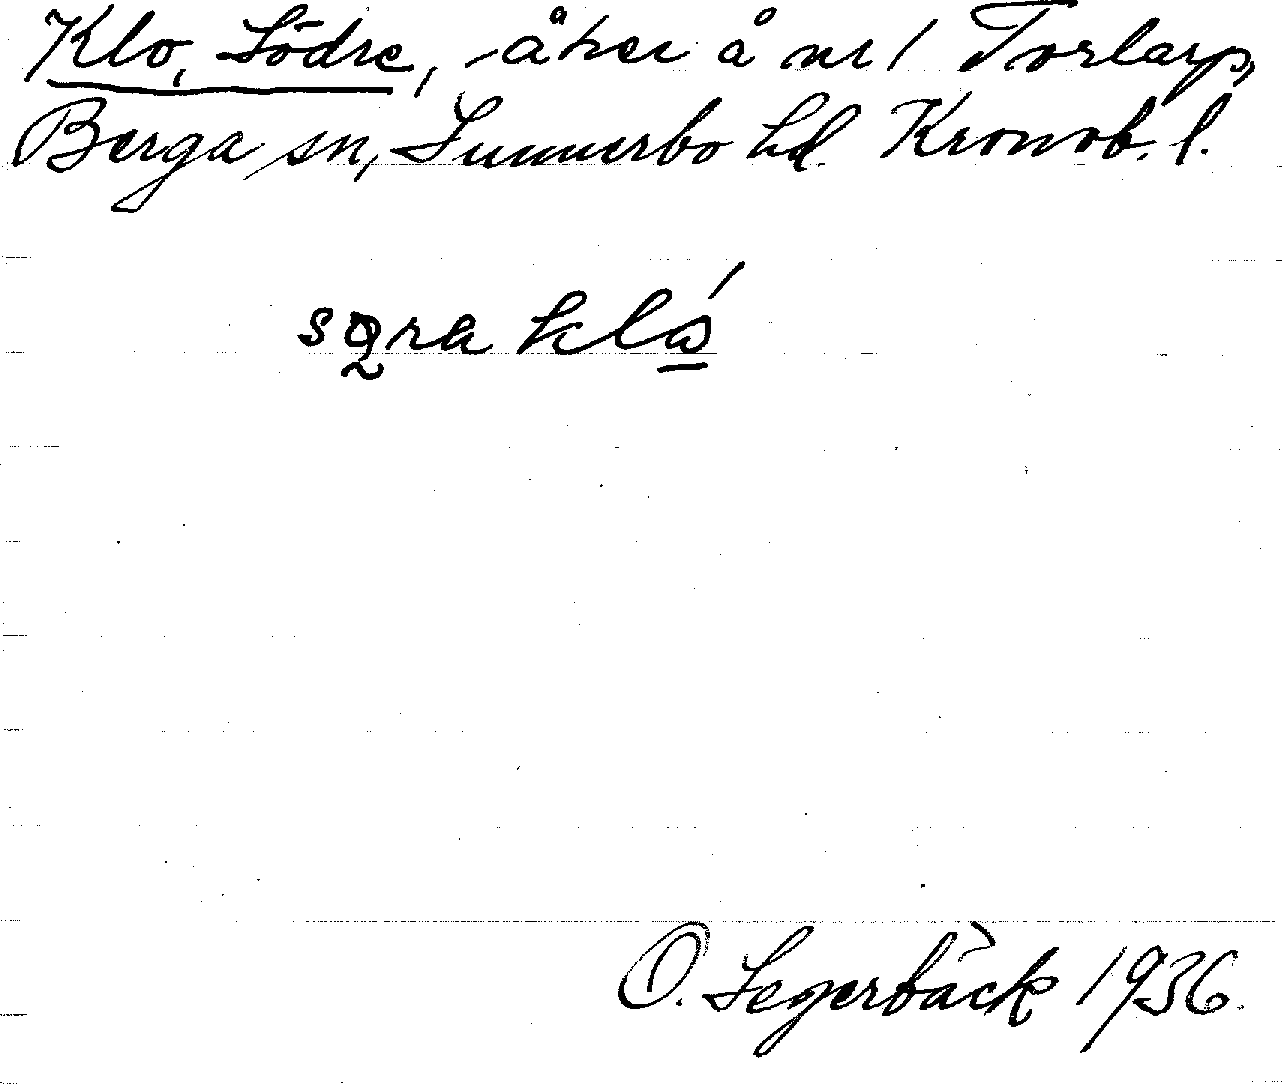 Klo, Södre, åker å nr 1 Torlarp,
Berga sn, Sunnerbo hd. Kronob. l.
O. Segerbäck 1936.